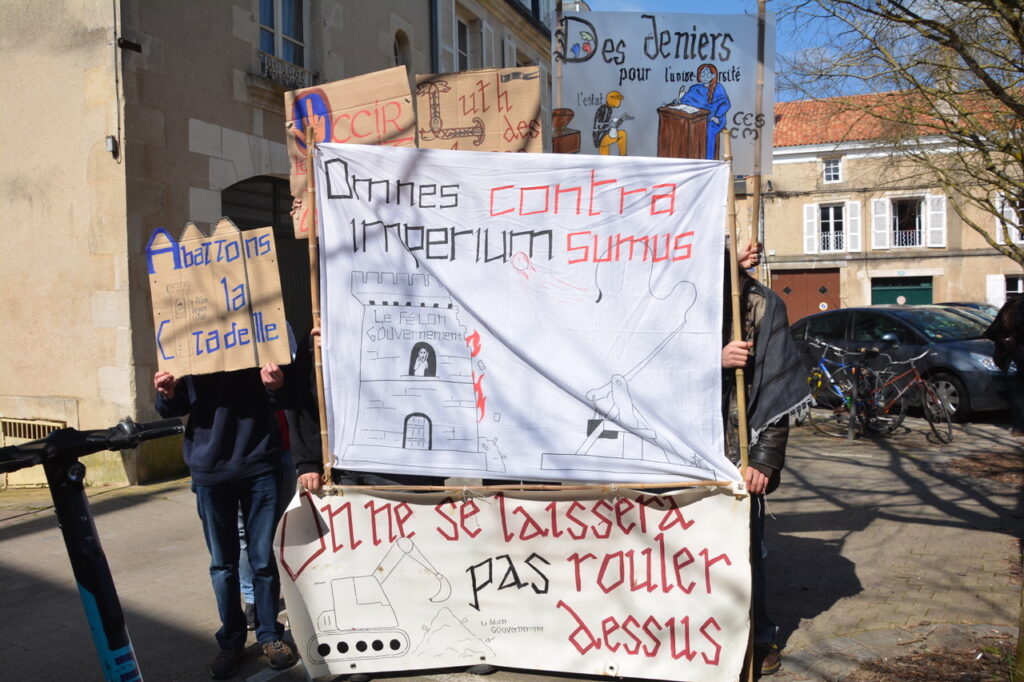 Des deniers
pour l'université
l'estat
CES
CM
OCCIR
Luth
des
Omnes contra
imperium sumus
Le Félon
Gouvernement
Abattons
la
Citadelle
On ne se laissera
pas rouler
dessus
le félon
Gouvernement